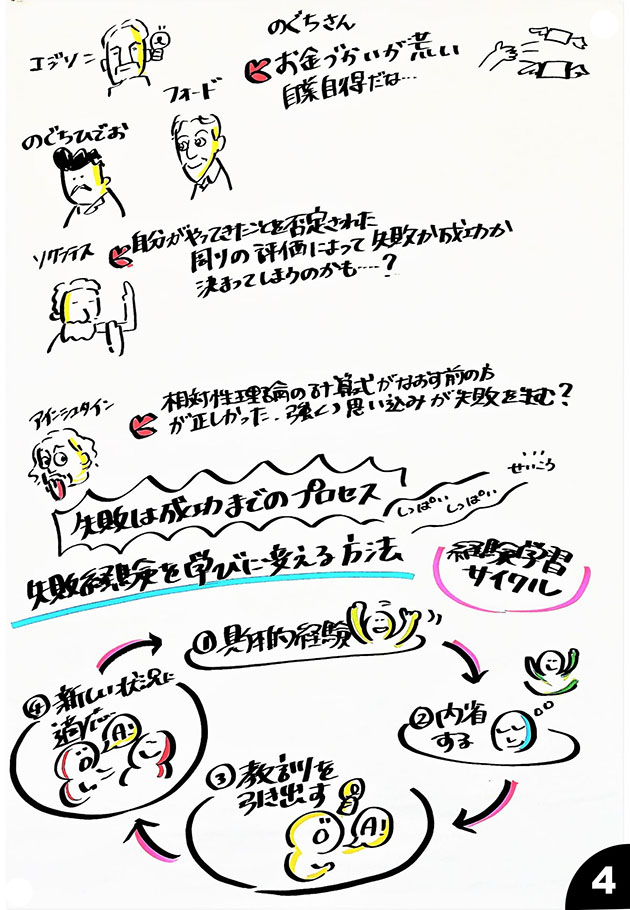 エジソン
のぐちさん
お金づかいが荒い
自業自得だな…
フォード
のぐちひでお
ソクラテス
自分がやってきたことを否定された
周りの評価によって失敗か成功か
決まってしまうのかも……?
アインシュタイン
相対性理論の計算式がなおす前の方
が正しかった.強い思い込みが失敗を生む?
失敗は成功までのプロセス
しっぱい
しっぱい
せいこう
失敗経験を学びに変える方法
経験学習
サイクル
①具体的経験
②内省
する
③教訓を
引き出す
A!
④新しい状況に
適応
A!
4